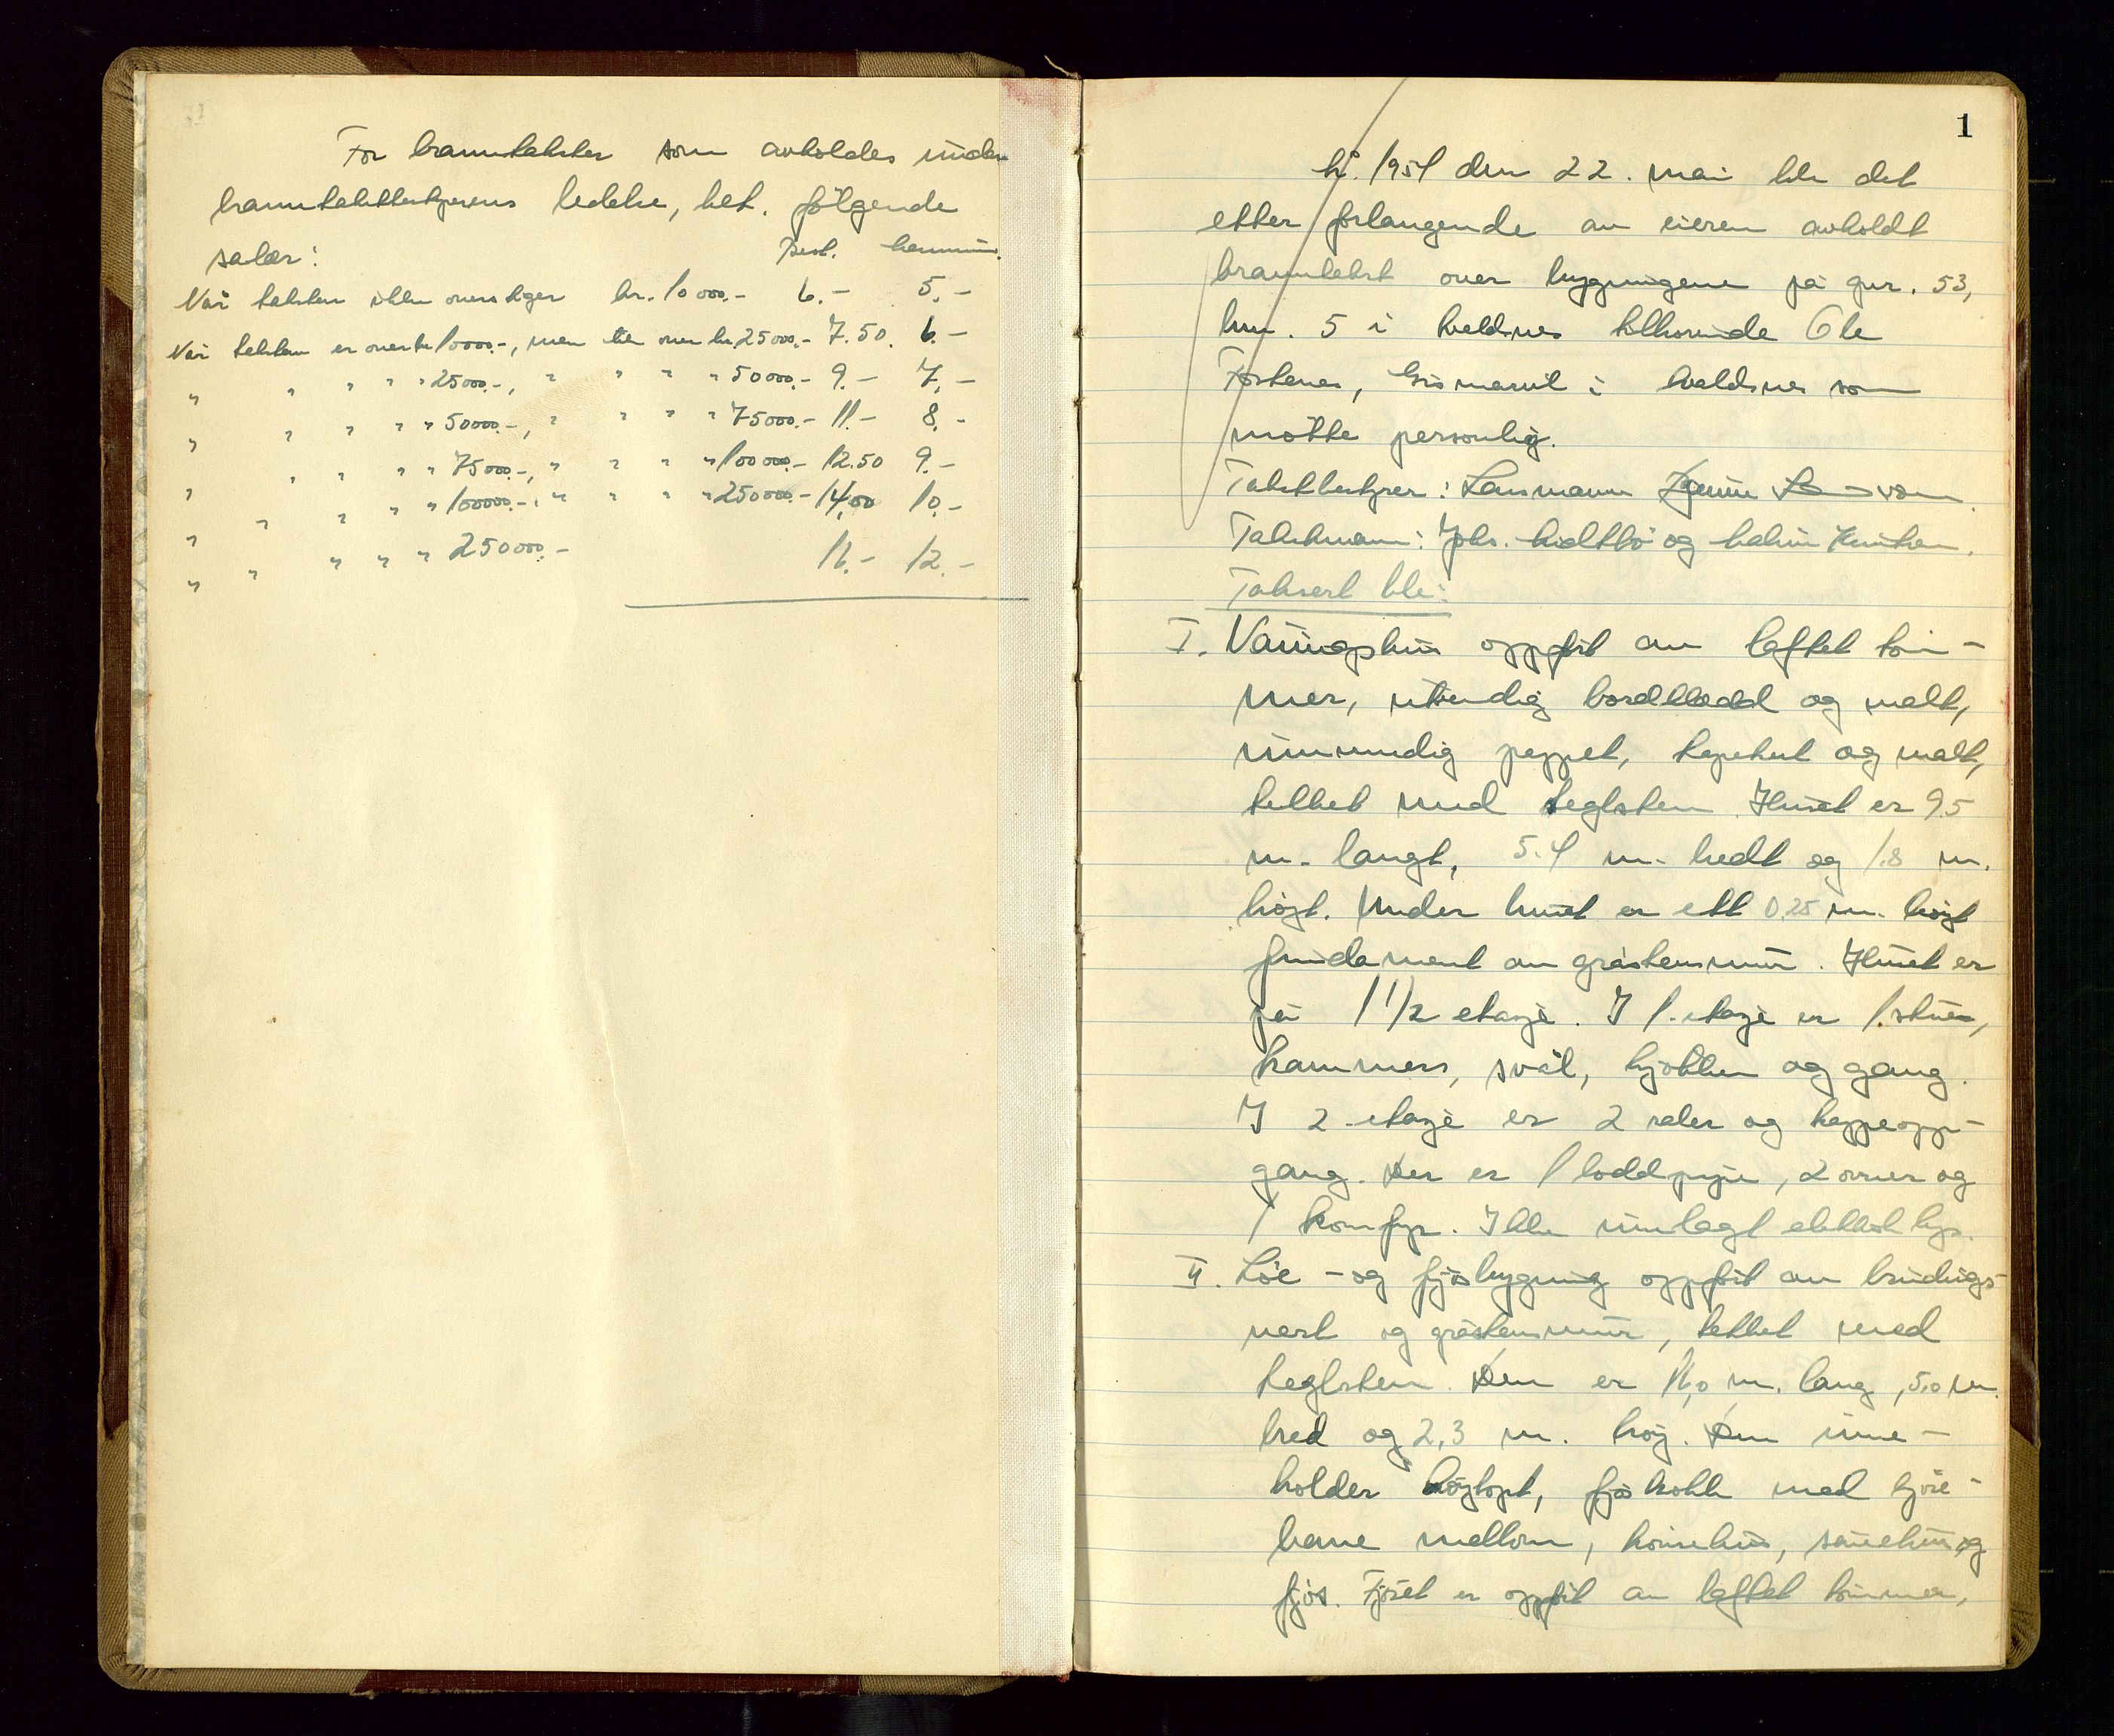 For branntakster som avholdes under
branntakstbestyrerens ledelse, bet. følgende
salær: Best. kommun.
Når taksten ikke overstiger kr. 10 000.- 6.- 5.-
Når taksten er over kr 10000.-, men ikke over kr. 25000.- 7.50. 6.-
" " " " " 25000.-, " " " " 50000.- 9.- 7.-
" " " " " 50000.-, " " " " 75000.- 11.- 8.-
" " " " " 75000.-, " " " " 100000.- 12.50 9.-
" " " " " 100000.-, " " " " 250000.- 14,00 10.-
" " " " " 250000.- 16.- 12.-
1
År. 1951 den 22. mai ble det
etter forlangende av eieren avholdt
branntakst over bygningene på gnr. 53,
bnr. 5 i Avaldsnes tilhørende Ole
i Avaldsnes som
møtte personlig.
Takstbestyrer: Lensmann
Takstmenn: Johs. og
Taksert ble:
I. Våningshus oppført av laftet tøm-
mer, utvendig bordkledd og malt,
innvendig pappet, tapetsert og malt,
tekket med teglsten. Huset er 9.5
m. langt, 5.4 m. bredt og 1.8 m.
høgt. Under huset er ett 0.25 m. høgt
fundament av gråstensmur. Huset er
på 1 1/2 etasje. I 1. etasje er 1. stue,
kammers, svål, kjøkken og gang.
I 2 etasje er 2 saler og trappeopp-
gang. Der er 1 loddpipe, 2 ovner og
1 komfyr. Ikke innlagt elektrisk lys.
II. Løe - og fjøsbygning oppført av bindings-
verk og gråstensmur, tekket med
teglsten. Den er 16,0 m. lang, 5,0 m.
bred og 2,3 m. høg. Den inne-
holder høytopt, med kjøre-
bane mellom, hønsehus, sauehus og
fjøs. Fjøset er oppført av laftet tømmer,